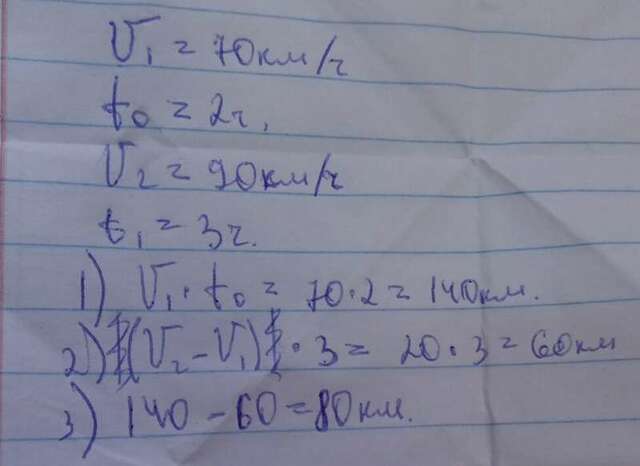 V₁ = 70км/ч
t₀ = 2ч,
V₂ = 90км/ч
t₁ = 3ч.
1) V₁ · t₀ = 70·2 = 140км.
2) (V₂ – V₁) · 3 = 20·3 = 60км
3) 140 – 60 = 80км.